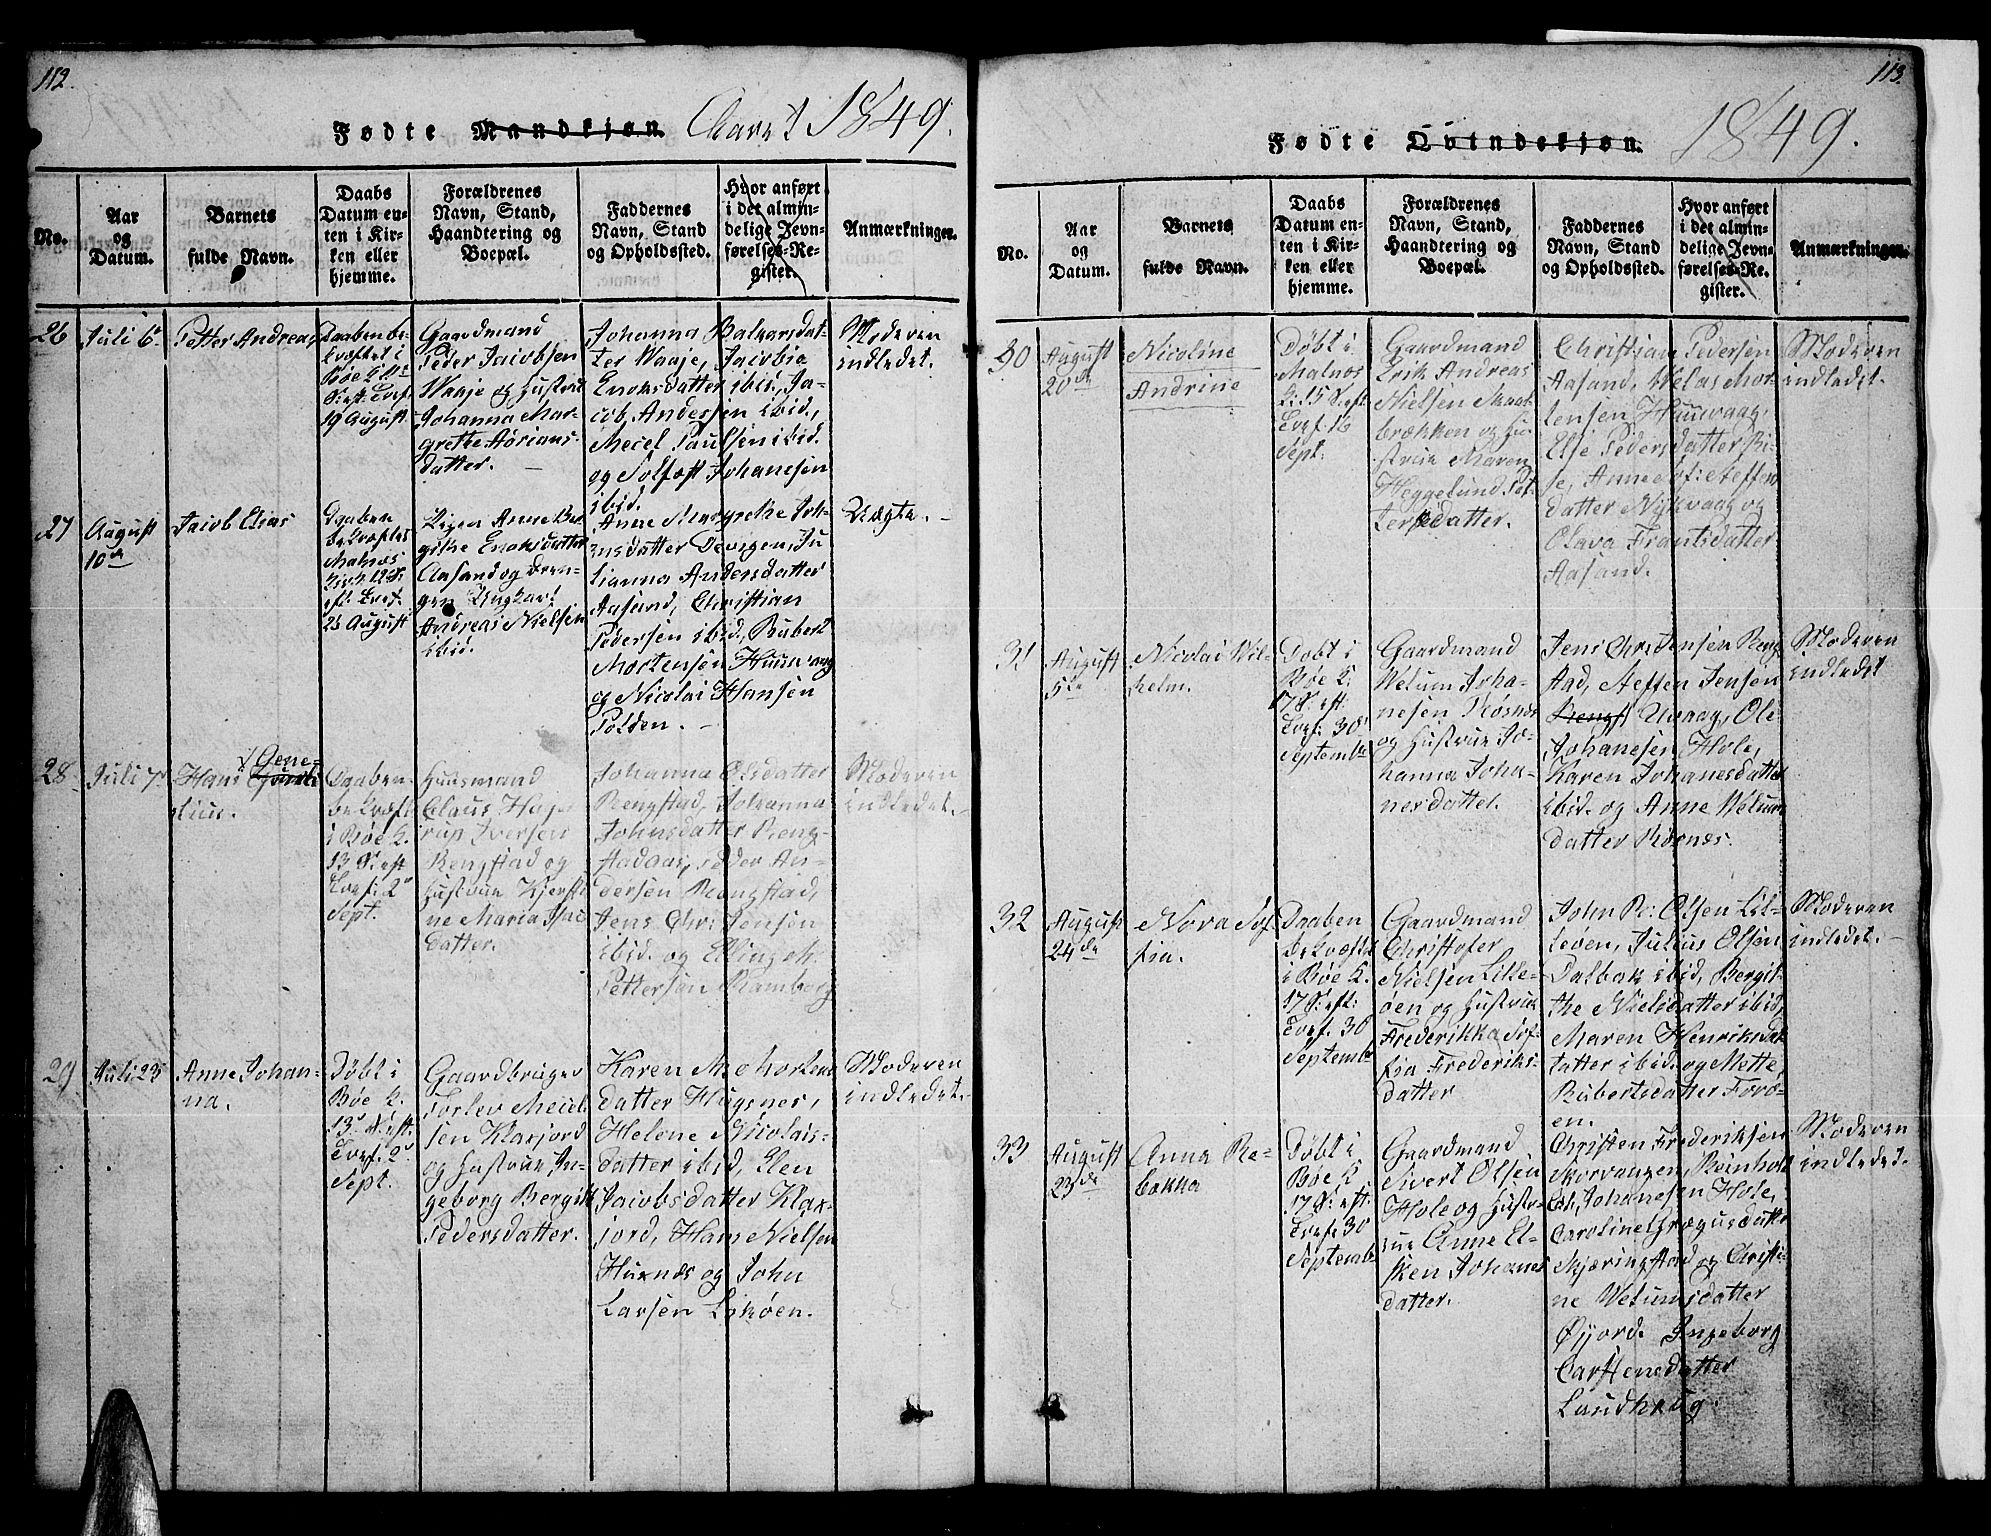 112.
Fødte Mandkjøn. Aaret 1849.
No.
Aar
og
Datum.
Barnets
fulde Navn.
Daabs
Datum en-
ten i Kir-
ken eller
hjemme.
Forældrenes
Navn, Stand,
Haandtering og
Boepæl.
Faddernes
Navn, Stand
og Opholdssted.
Hvor anført
i det almin-
delige Jevn-
førelses-Re-
gister.
Anmærkninger.
26
Juli 6
Petter Andreas
Daaben be-
kræftet i
Bøe K.
S. eft. Tref.
19 August
Gaardmand
Peder Jacobsen
Waaje og Hustrue
Johanna Mar-
grethe Adrians-
datter.
Johanna Baltzarsdat-
ter Waaje, Jacobia
Enoksdatter ibid, Ja-
cob Andersen ibid,
Mecel Paulsen ibid.
og Solfæst Johanesen
ibid.
Moderen
indledet.
27
August
10de
Jacob Elias
Daaben
bekræftet
Malnæs
Kirk 12 S.
eft. Tref.
26 August
Pigen Anne Ber-
githe Enoksdatter
Aasand og Dren-
gen Ungkarl
Andreas Nielsen
ibid.
Anne Margrethe Joh-
ansdatter Devigen, Ju-
lianna Andersdatter
Aasand, Christian
Pedersen ibid, Rubert
Mortensen Huusvaag
og Nicolai Hansen
Polden.
Uægte.
28
Juli 7
Hans Gene-
tius.
Daaben
bekræft
i Bøe K.
13 S. eft
Tref. 2
Sept.
Huusmand
Claus Hage-
rup Iversen
Rengstad og
Hustrue Kjersti-
ne Maria Isac
datter.
Johanna Olsdatter
Rengstad, Johanna
Johnsdatter Reng-
stadaas, Peder An-
dersen Rengstad,
Jens Chr. Jensen
ibid. og Elling M.
Pettersen Ramberg
Moderen
indledet.
29
Juli 23
Anne Johan-
na.
Døbt i
Bøe K.
13 S. eft.
Tref. 2
Sept.
Gaardbruger
Torlev Meiel-
sen Klaxjord
og Hustrue In-
geborg Bergitt
Pedersdatter.
Karen M. Mortens
datter Hugsnes,
Helene Nicolais-
datter ibid, Elen
Jacobsdatter Klax-
jord, Hans Nielsen
Huxnæs og John
Larsen Likøen.
Moderen
indledet.
113.
Fødte Qvindekjøn. 1849.
No.
Aar
og
Datum.
Barnets
fulde Navn.
Daabs
Datum en-
ten i Kir-
ken eller
hjemme.
Forældrenes
Navn, Stand,
Haandtering og
Boepæl.
Faddernes
Navn, Stand
og Opholdssted.
Hvor anført
i det almin-
delige Jevn-
førelses-Re-
gister.
Anmærkninger.
30
August
20de
Nicoline
Andrine
Døbt i
Malnæs
K. 15 S. eft.
Tref. 16
Sept.
Gaardmand
Erik Andreas
Nielsen
brækken og Hu-
strue Maren
Heggelund Pet-
tersdatter.
Christian Pedersen
Aasand, Welas Mor-
tensen Huusvaag,
Else Pedersdatter Ri-
se, Anne Steffen
datter Nykvaag og
Olava Frantsdatter
Aasand.
Moderen
indledet.
31
August
5te
Nicolai Wil-
helm.
Døbt i
Bøe K.
17 S. eft.
Tref. 30
Septembr
Gaardmand
Welum Joha-
nesen Røsnes
og Hustrue Jo-
hanna Joha-
nesdatter.
Jens Chr. Jensen Reng-
stad, Steffen Jensen
Rengst Uvaag, Ole
Johanesen Hole,
Karen Johanesdatter
ibid. og Anne Welum
datter Røsnæs.
Moderen
indledet
32
August
24de
Nora Sof-
fia.
Daaben
bekræftet
i Bøe K.
17 S. eft:
Tref. 30
Septembr
Gaardmand
Christofer
Nielsen Lille-
øen og Hustrue
Frederikka Sof-
fia Frederiks-
datter
John P. Olsen Lil-
leøen, Julius Olsen
Dalbak ibid, Bergit-
the Nielsdatter ibid,
Maren Henriksdat-
tatter ibid. og Mette
Rubertsdatter Forø-
en.
Moderen
indledet.
33
August
23de
Anna Re-
bekka
Døbt i
Bøe K
17 S. eft.
Tref. 30
Septemb
Gaardmand
Sivert Olsen
Hole og Hustr-
rue Anne El-
sken Johanes
datter.
Christen Frederiksen
Skorvaagen, Reinholt
Johanesen Hole,
Caroline Græguesdatter
Skjæringstad og Christi-
ne Welumsdatter
Øyjord. Ingeborg
Carstensdatter
Laudhaug.
Moderen
indledet.